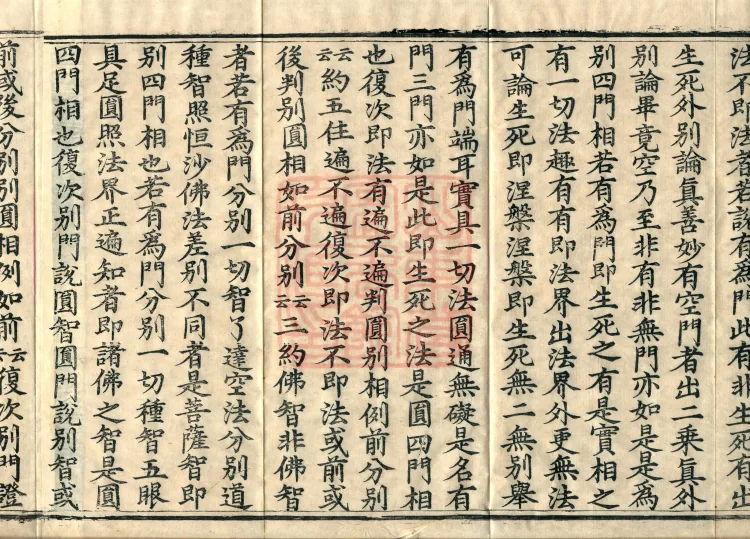 法不即法者若説有為門此有非生死有出
生死外別論眞善妙有空門者出二乗眞外
別論畢竟空乃至非有非無門亦如是是為
別四門相若有為門即生死之有是實相之
有一切法趣有有即法界出法界外更無法
可論生死即涅槃涅槃即生死無二無別舉
有為門端耳實具一切法圓通無礙是名有
門三門亦如是此即生死之法是圓四門相
也復次即法有遍不遍判圓別相例前分別
云云約五住遍不遍復次即法不即法或前或
後判別圓相如前分別云云三約佛智非佛智
者若有為門分別一切智了達空法分別道
種智照恒沙佛法差別不同者是菩薩智即
別四門相也若有為門分別一切種智五眼
具足圓照法界正遍知者即諸佛之智是圓
四門相也復次別門説圓智圓門説別智或
前或後分別別圓相例如前云云復次別門證